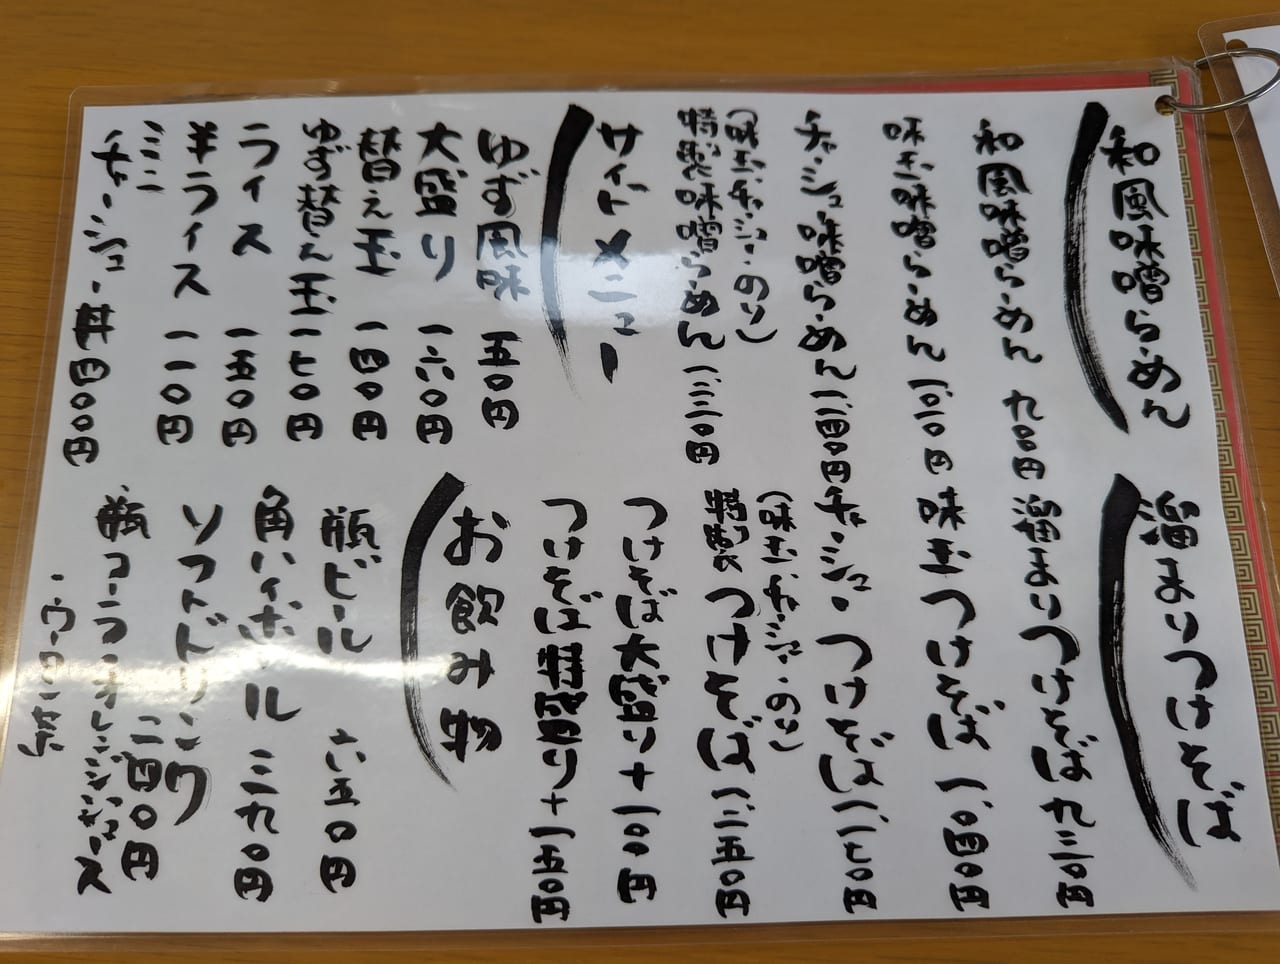 和風味噌らーめん
和風味噌らーめん 九八〇円
味玉味噌らーめん 一、〇一〇円
チャーシュー味噌らーめん 一、一四〇円
(味玉・チャーシュー・のり)
特製味噌らーめん 一、二三〇円
サイドメニュー
ゆず風味 五〇円
大盛り 一六〇円
替え玉 一四〇円
ゆず替え玉 一七〇円
ライス 一五〇円
半ライス 一一〇円
ミニチャーシュー丼 四〇〇円
溜まりつけそば
溜まりつけそば 九三〇円
味玉つけそば 一、〇四〇円
チャーシューつけそば 一、一七〇円
(味玉・チャーシュー・のり)
特製つけそば 一、二五〇円
つけそば大盛り+一〇〇円
つけそば特盛り+一五〇円
お飲み物
瓶ビール 六五〇円
角ハイボール 三九〇円
ソフトドリンク 二四〇円
瓶コーラ・オレンジジュース
・ウーロン茶